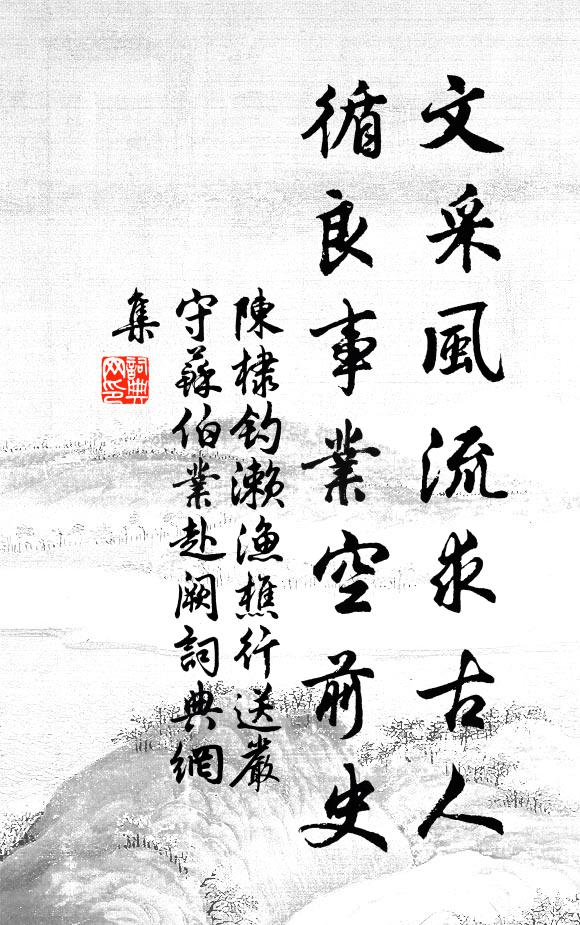 文采風流求古人
循良事業空前史
陳棣釣瀨漁樵行送嚴
守蘇伯業赴闕詞典網
集
詞典
网印